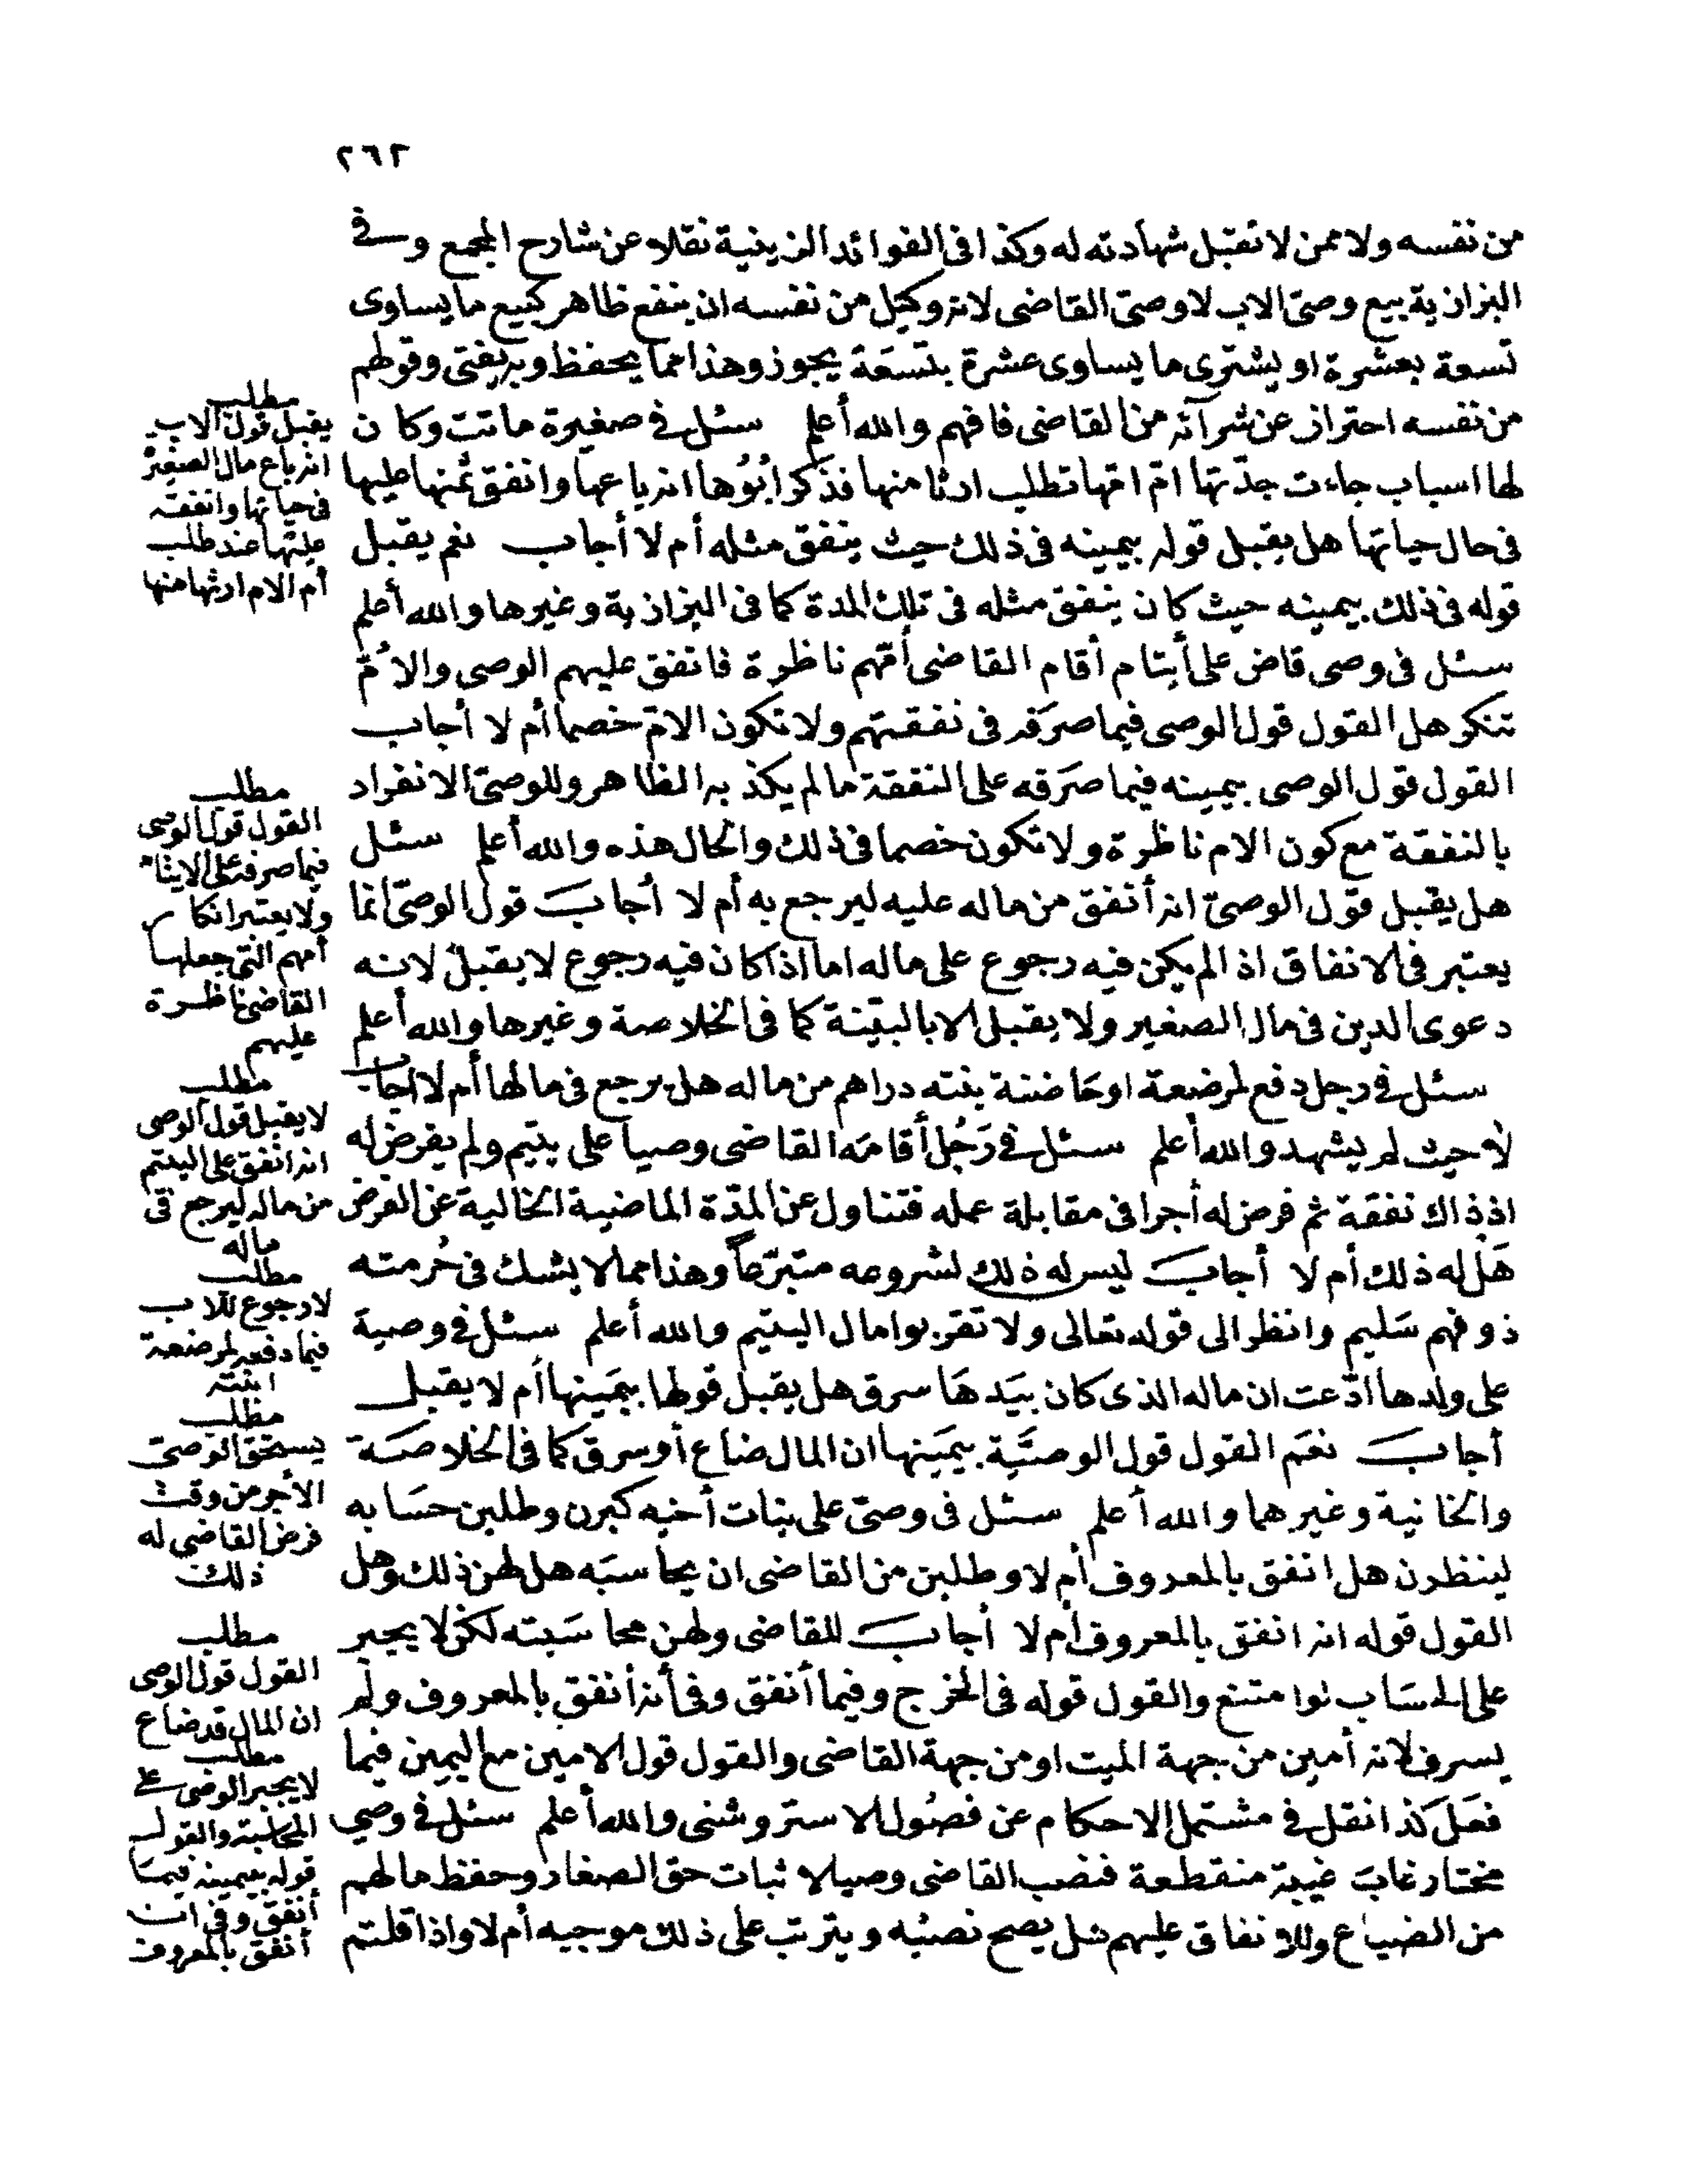 ٢٦٢
من نفسه ولا ممن لا تقبل شهادته له وكذا فى الفوائد الزينية نقلا عن شارح المجمع وفى
البزازية بيع وصىّ الاب لا وصىّ القاضى لانه وكيل من نفسه ان بنفع ظاهر كبيع ما يساوى
تسعة بعشرة او يشترى ما يساوى عشرة بتسعَة يجوز وهذا مما يحفظ وبه يفتى وقولهم
من نفسه احتراز عن شرآئه من القاضى فافهم والله أعلم سئل فى صغيرة ماتت وكان
لها اسباب جاءت جدّتها امّ امّها تطلب ارثا منها فذكر ابُوُها انه باعها وانفق ثمنها عليها
فى حال حياتها هل يقبل قوله بيمينه فى ذلك حيث ينفق مثله أم لا أجاب نعم يقبل
قوله فى ذلك بيمينه حيث كان ينفق مثله فى تلك المدة كما فى البزازية وغيرها والله أعلم
سئل فى وصى قاض على أيتام أقام القاضى أمّهم ناظرة فانفق عليهم الوصى والأمّ
تنكر هل القول قول الوصى فيما صرَفه فى نفقتهم ولا تكون الامّ خصما أم لا أجاب
القول قول الوصى بيمينه فيما صرَفه على النفقة ما لم يكذبه الظاهر وللوصىّ الانفراد
بالنفقة مع كون الام ناظرة ولا تكون خصما فى ذلك والحال هذه والله أعلم سئل
هل يقبل قول الوصىّ انه أنفق من ماله عليه ليرجع به أم لا أجابَ قول الوصىّ انما
يعتبر فى الانفاق اذا لم يكن فيه رجوع على ماله اما اذا كان فيه رجوع لا يقبل لانه
دعوى الدين فى مال الصغير ولا يقبل الا بالبيّنة كما فى الخلاصة وغيرها والله أعلم
سئل فى رجل دفع لمرضعة او حَاضنة بنته دراهم من ماله هل يرجع فى مالها أم لا أجاب
لا حيث لم يشهد والله أعلم سئل فى رَجُل أقامَه القاضى وصيا على يتيم ولم يفرض له
اذ ذاك نفقة ثم فرض له أجرا فى مقابلة عمله فتناول عن المدّة الماضية الخالية عن الفرض
هَل له ذلك أم لا أجابَ ليس له ذلك لشروعه متبرّعاً وهذا مما لا يشك فى حُرمته
ذو فهم سَليم وانظر الى قوله تعالى ولا تقربوا مال اليتيم والله أعلم سئل فى وصية
على ولدها ادّعت ان ماله الذى كان بيَدهَا سرق هل يقبل قولها بيمَينها أم لا يقبل
أجابَ نعَم القول قول الوصيَّة بيمَينها ان المال ضاع أو سرق كما فى الخلاصَة
والخانية وغيرهما والله أعلم سئل فى وصىّ على بنات أخيه كبرن وطلبن حسَابه
لينظرن هل انفق بالمعروف أم لا وطلبن من القاضى ان يحاسبَه هل لهن ذلك وهل
القول قوله انه انفق بالمعروف أم لا أجابَ للقاضى ولهن محاسَبته لكن لا يجبر
على الحسَاب لو امتنع والقول قوله فى الخرج وفيما أنفق وفى أنه أنفق بالمعروف ولم
يسرف لانه أمين من جهة الميت او من جهة القاضى والقول قول الامين مع اليمين فيما
فعَل كذا نقل فى مشتمل الاحكام عن فصُول الاستروشنى والله أعلم سئل فى وصى
مختار غابَ غيبة منقطعة فنصب القاضى وصيا لاثبات حق الصغار وحفظ مالهم
من الضياع وللانفاق عليهم هل يصح نصبُه ويترتب على ذلك موجبه أم لا واذا قلتم
مطلب
يقبل قول الاب
انه باع مال الصغير
فى حياتها وانفقه
عليها عند طلب
أم الام ارثها منها
مطلب
القول قول الوصى
فيما صرفه على الايتام
ولا يعتبر انكار
أمهم التى جعلها
القاضى ناظرة
عليهم
مطلب
لا يقبل قول الوصى
انه انفق على اليتيم
من ماله ليرجع فى
ماله
مطلب
لا رجوع للاب
فيما دفعه لمرضعة
ابنته
مطلب
يستحق الوصىّ
الأجر من وقت
فرض القاضى له
ذلك
مطلب
القول قول الوصى
ان المال قد ضاع
مطلب
لا يجبر الوصى على
المحاسبة والقول
قوله بيمينه فيما
أنفق وفى انه
أنفق بالمعروف